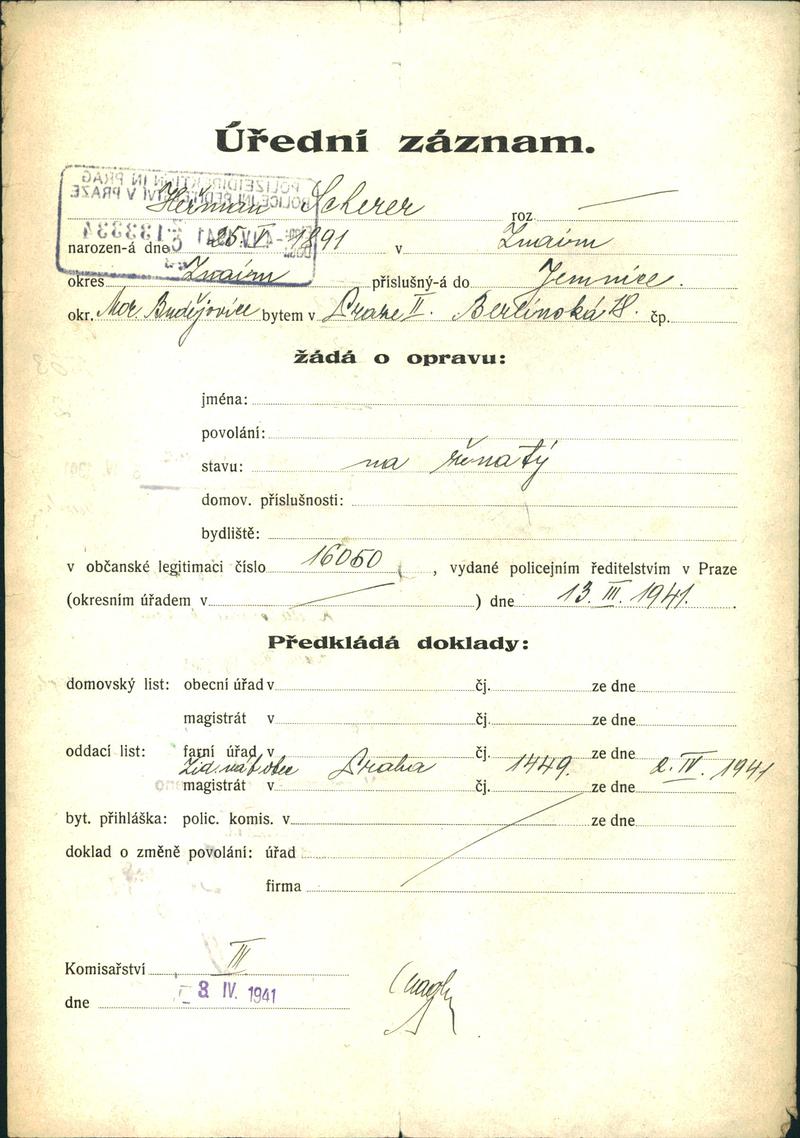 Úřední záznam.
POLIZEIDIREKTION IN PRAG
POLICEJNÍ ŘEDITELSTVÍ V PRAZE
133334
Heřman Scherer roz.
narozen-á dne 25. V. 1891 v Znaim
okres Znaim příslušný-á do Jemnice.
okr. Mor. Budějovice bytem v Praze II. Berlínská 18. čp.
žádá o opravu:
jména:
povolání:
stavu: na ženatý
domov. příslušnosti:
bydliště:
v občanské legitimaci číslo 16050, vydané policejním ředitelstvím v Praze
(okresním úřadem v ) dne 13. III. 1941.
Předkládá doklady:
domovský list: obecní úřad v čj. ze dne
magistrát v čj. ze dne
oddací list: farní úřad v čj. ze dne
Žid. náb. obec Praha 1449. 2. IV. 1941
magistrát v čj. ze dne
byt. přihláška: polic. komis. v ze dne
doklad o změně povolání: úřad
firma
Komisařství III
dne 3. IV. 1941